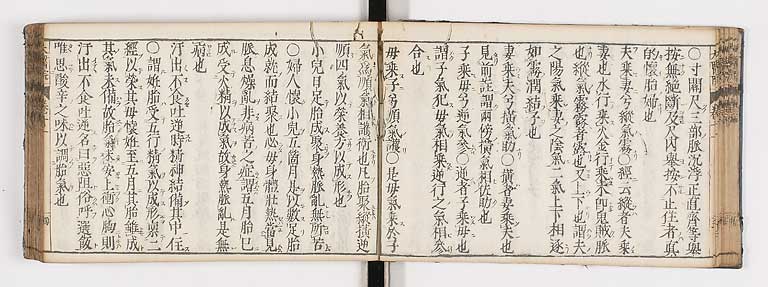 ○寸關尺三部脈沉浮正直齊等擧
按無絕斷及尺內擧按不止住者真
的懷胎婦也
夫乘妻兮縱氣霧○經云縱者夫乘
妻也水行乘火金行乘木即鬼賊脈
也縱氣霧霧者露也又上下也謂夫
之陽氣乘妻之陰氣二氣上下相逐
如霧潤結子也
妻乘夫兮橫氣助○橫者妻乘夫也
見前註謂兩傍橫氣相佐助也
子乘母兮逆氣參○逆者子乘母也
謂子氣犯母氣相乘逆行之氣相參
合也
母乘子兮順氣護○是母氣乘於子
氣為順氣相護衛也凡胎聚縱橫逆
順四氣以榮養方以成形也
小兒日足胎成聚身熱脈亂無所苦
○婦人懷小兒五箇月是以數足胎
成就而結聚也必母身體壯熱當見
脈息燥亂非病苦之症謂五月胎已
成受火精以成氣故身熱脈亂是無
病也
汗出不食吐逆時精神結備其中住
○謂妊胎受五行精氣以成形稟二
經以榮其母懷妊至五月其胎雖成
其氣未備故胎氣未安上衝心胸則
汗出不食吐逆名曰惡阻俗呼選飯
唯思酸辛之味以調胎氣也